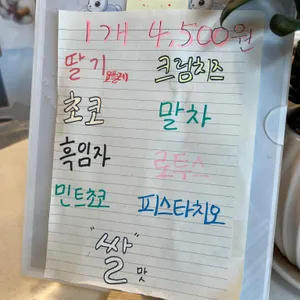 1개 4,500원
딸기요플레 크림치즈
초코 말차
흑임자 로투스
민트초코 피스타치오
"쌀" 맛